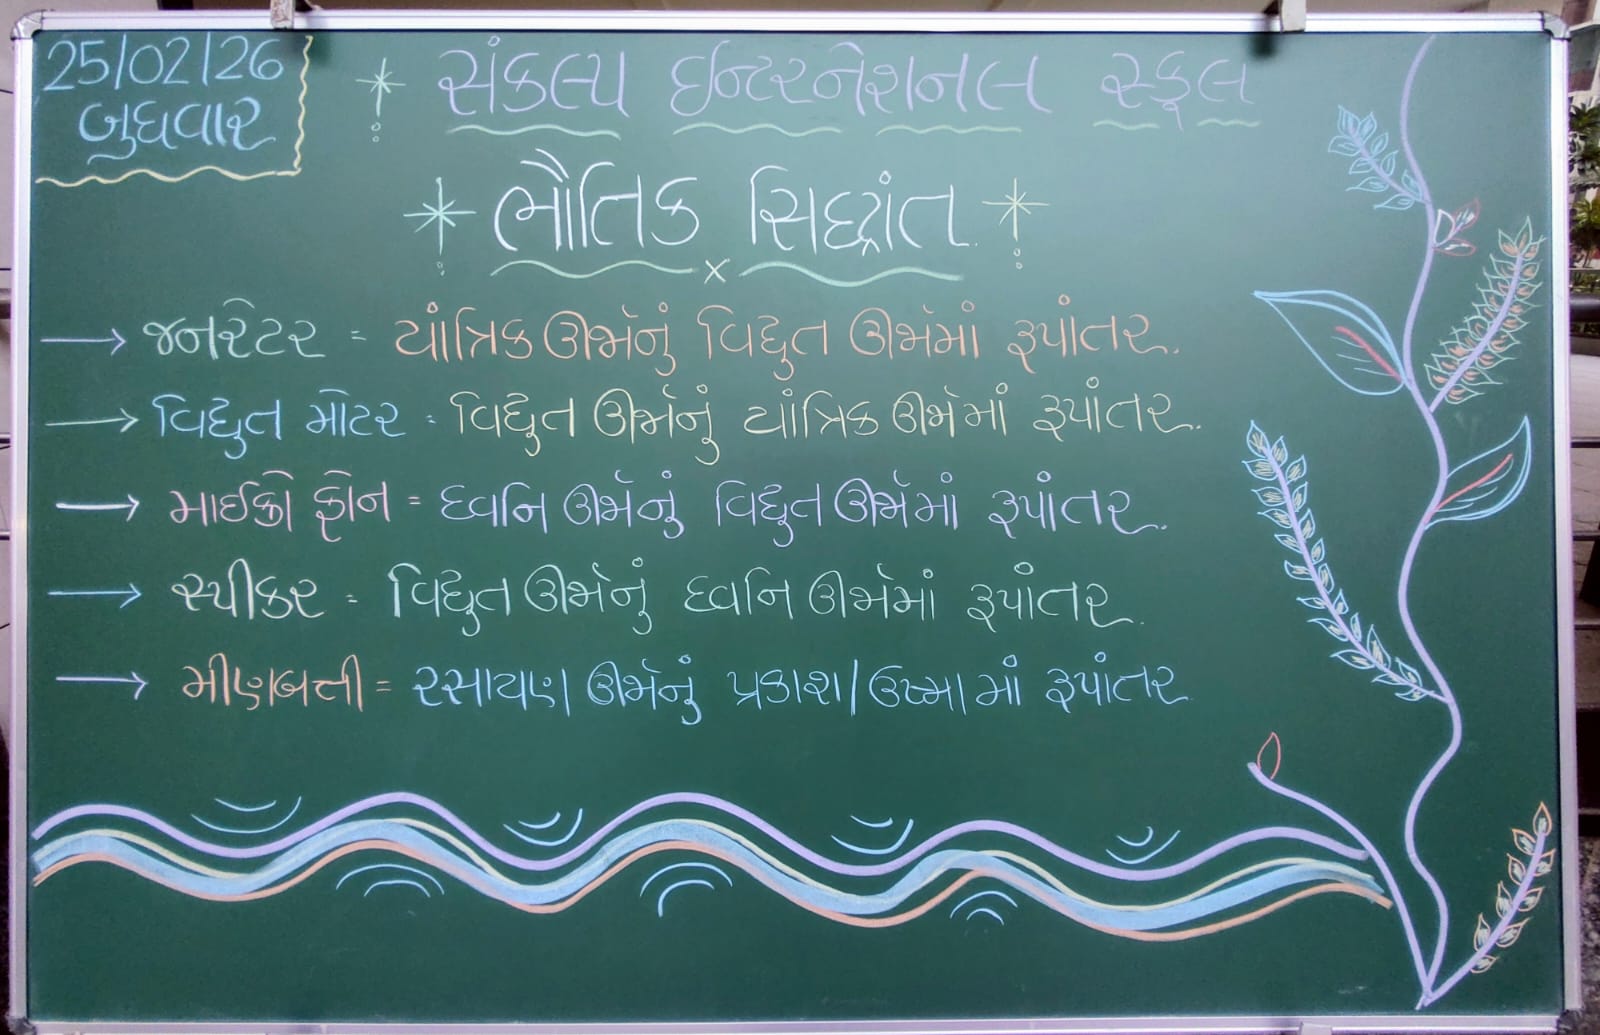 25/02/26
બુધવાર
સંકલ્પ ઈન્ટરનેશનલ સ્કૂલ
ભૌતિક સિદ્ધાંત.
→ જનરેટર = યાંત્રિક ઊર્જાનું વિદ્યુત ઊર્જામાં રૂપાંતર.
→ વિદ્યુત મોટર = વિદ્યુત ઊર્જાનું યાંત્રિક ઊર્જામાં રૂપાંતર.
→ માઈક્રો ફોન = ધ્વનિ ઊર્જાનું વિદ્યુત ઊર્જામાં રૂપાંતર.
→ સ્પીકર = વિદ્યુત ઊર્જાનું ધ્વનિ ઊર્જામાં રૂપાંતર.
→ મીણબત્તી = રસાયણ ઊર્જાનું પ્રકાશ/ઉષ્મામાં રૂપાંતર